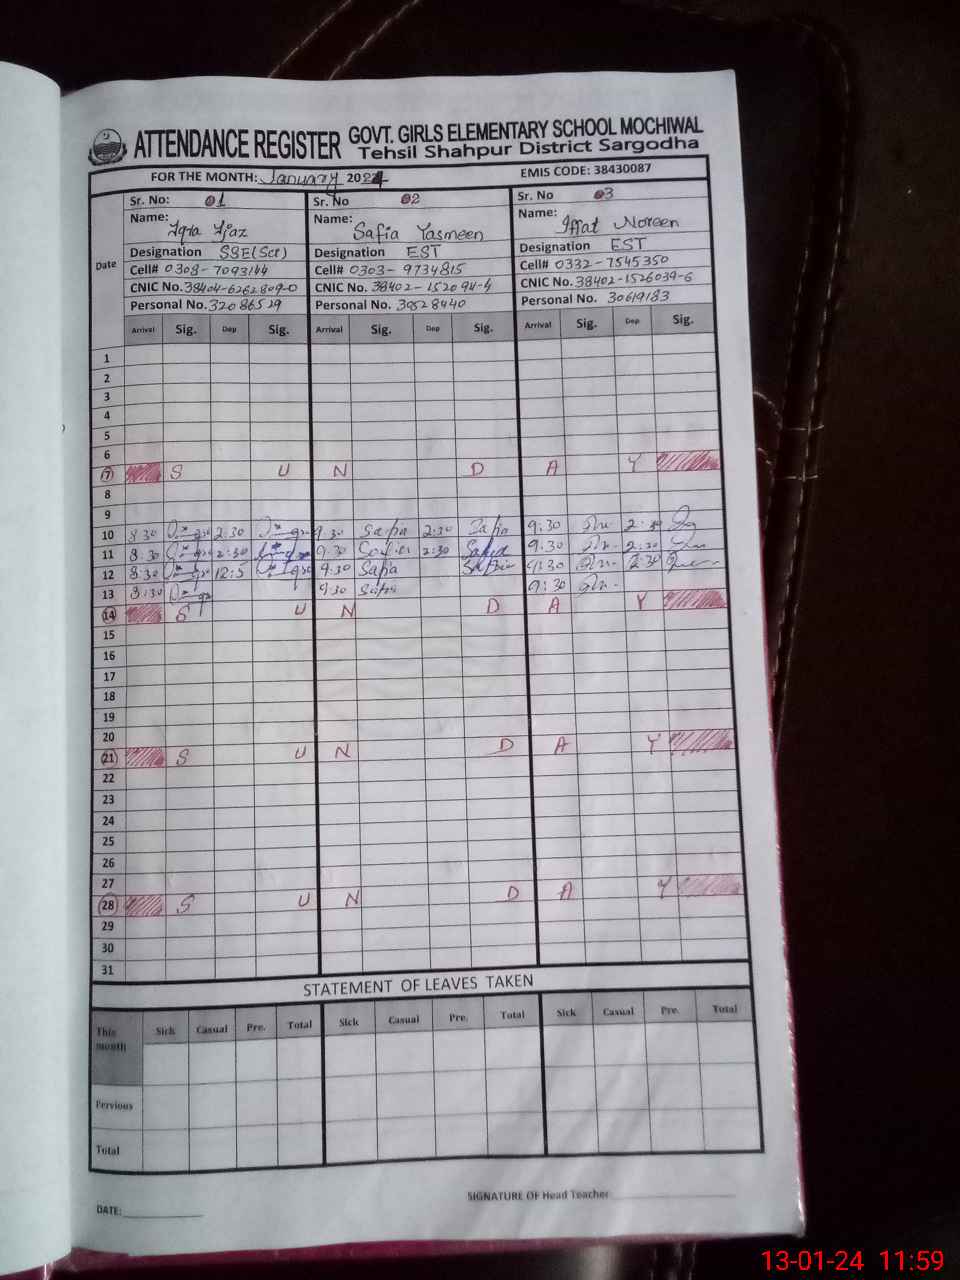 ATTENDANCE REGISTER GOVT. GIRLS ELEMENTARY SCHOOL MOCHIWAL
Tehsil Shahpur District Sargodha
FOR THE MONTH: January 2024 EMIS CODE: 38430087
Date Sr. No: 01 Sr. No 02 Sr. No 03
Name: Iqra Ijaz Name: Safia Yasmeen Name: Iffat Noreen
Designation SSE(Sci) Designation EST Designation EST
Cell# 0308-7093144 Cell# 0303-9734815 Cell# 0332-7545350
CNIC No. 38404-6262809-0 CNIC No. 38402-152094-4 CNIC No. 38402-1526039-6
Personal No. 32086529 Personal No. 30528440 Personal No. 30619183
Arrival Sig. Dep Sig. Arrival Sig. Dep Sig. Arrival Sig. Dep Sig.
1
2
3
4
5
6
7 S U N D A Y
8
9
10 8:30 2:30 9:30 Safia 2:30 Safia 9:30 2:30
11 8:30 2:30 9:30 Safia 2:30 Safia 9:30 2:30
12 8:30 12:5 9:30 Safia Safia 9:30 2:30
13 8:30 9:30 Safia 9:30
14 S U N D A Y
15
16
17
18
19
20
21 S U N D A Y
22
23
24
25
26
27
28 S U N D A Y
29
30
31
STATEMENT OF LEAVES TAKEN
This month Sick Casual Pre. Total Sick Casual Pre. Total Sick Casual Pre. Total
Pervious
Total
DATE: SIGNATURE OF Head Teacher
13-01-24 11:59